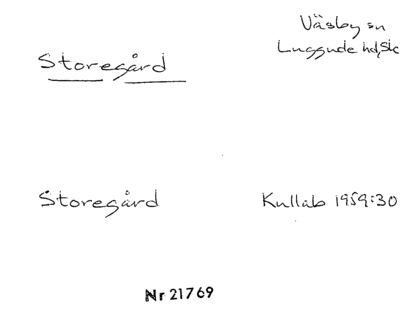 Väsby sn
Storegård
Luggude hd, Sk
Storegård
Kullab 1959:30
Nr 21769